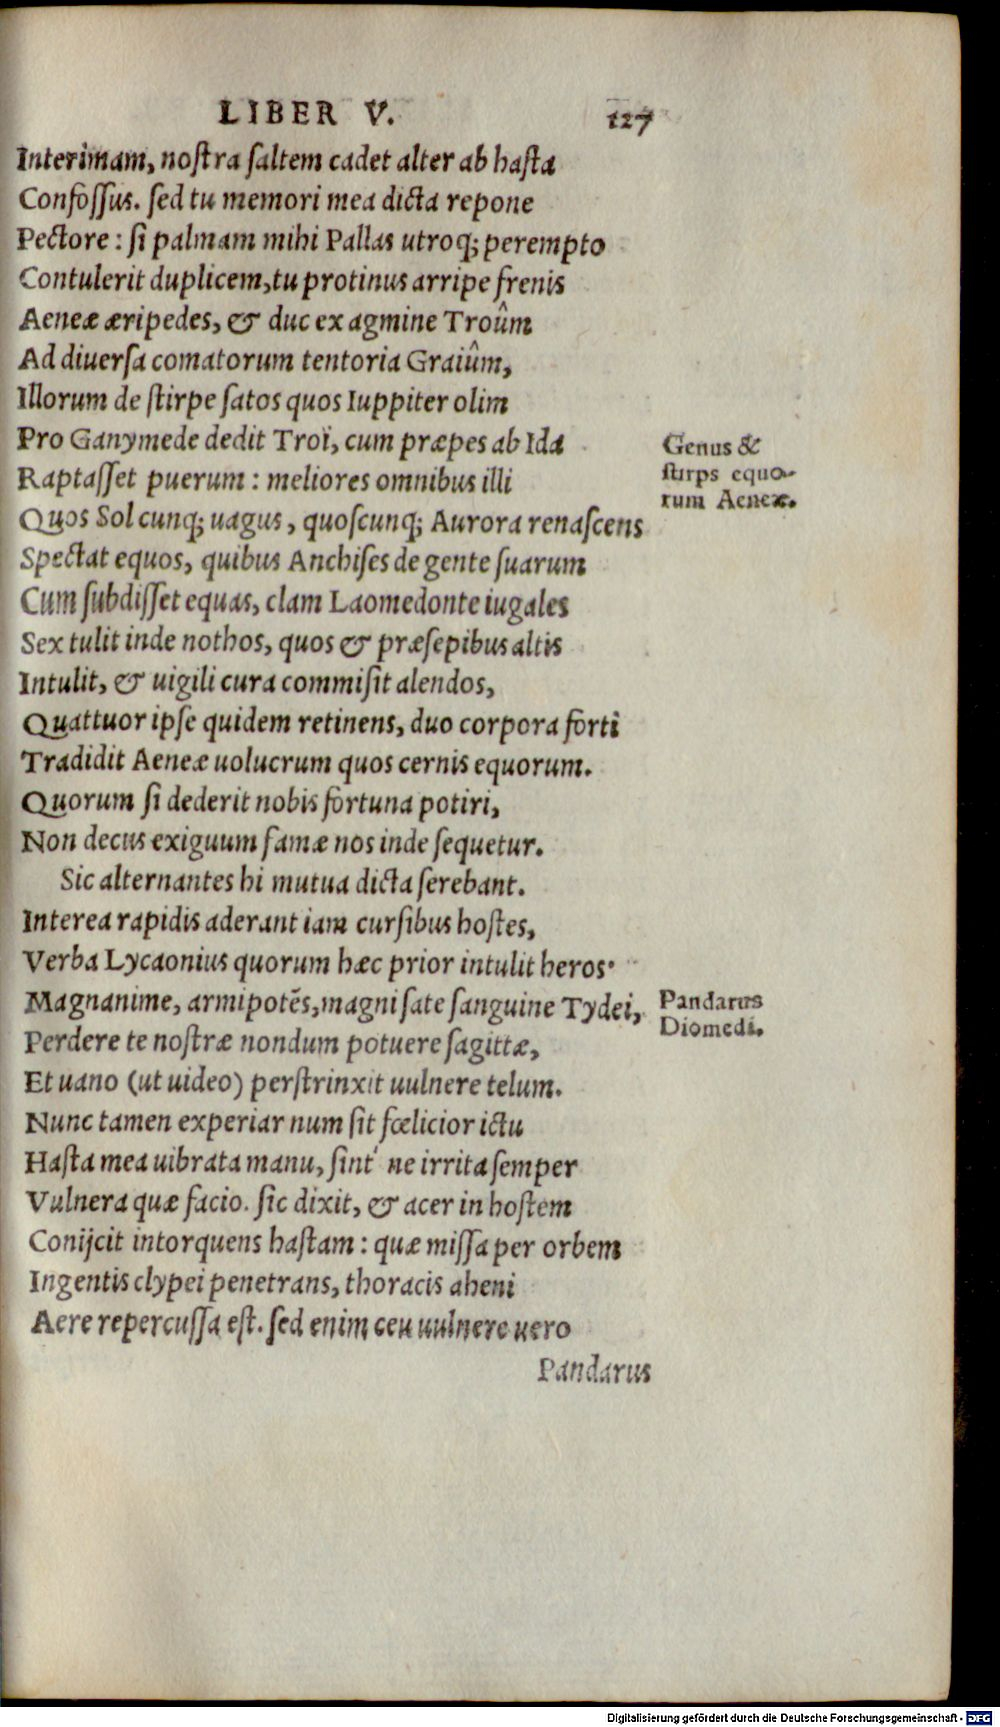 LIBER V. 127
Interimam, nostra saltem cadet alter ab hasta
Confossus. sed tu memori mea dicta repone
Pectore : si palmam mihi Pallas utroq; perempto
Contulerit duplicem, tu protinus arripe frenis
Aeneæ æripedes, & duc ex agmine Troûm
Ad diuersa comatorum tentoria Graiûm,
Illorum de stirpe satos quos Iuppiter olim
Pro Ganymede dedit Troï, cum præpes ab Ida
Genus &
Raptasset puerum : meliores omnibus illi
stirps equo-
rum Aeneæ.
Quos Sol cunq; uagus, quoscunq; Aurora renascens
Spectat equos, quibus Anchises de gente suarum
Cum subdisset equas, clam Laomedonte iugales
Sex tulit inde nothos, quos & præsepibus altis
Intulit, & uigili cura commisit alendos,
Quattuor ipse quidem retinens, duo corpora forti
Tradidit Aeneæ uolucrum quos cernis equorum.
Quorum si dederit nobis fortuna potiri,
Non decus exiguum famæ nos inde sequetur.
Sic alternantes hi mutua dicta serebant.
Interea rapidis aderant iam cursibus hostes,
Verba Lycaonius quorum hæc prior intulit heros·
Magnanime, armipotẽs, magni sate sanguine Tydei,
Pandarus
Diomedi.
Perdere te nostræ nondum potuere sagittæ,
Et uano (ut uideo) perstrinxit uulnere telum.
Nunc tamen experiar num sit fœlicior ictu
Hasta mea uibrata manu, sint' ne irrita semper
Vulnera quæ facio. sic dixit, & acer in hostem
Conijcit intorquens hastam : quæ missa per orbem
Ingentis clypei penetrans, thoracis aheni
Aere repercussa est. sed enim ceu uulnere uero
Pandarus
Digitalisierung gefördert durch die Deutsche Forschungsgemeinschaft - DFG